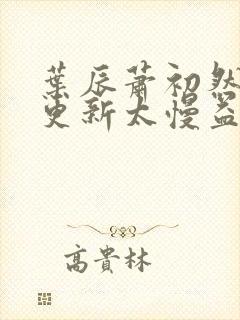 葉辰蕭初然
更新太慢盜
高貴林